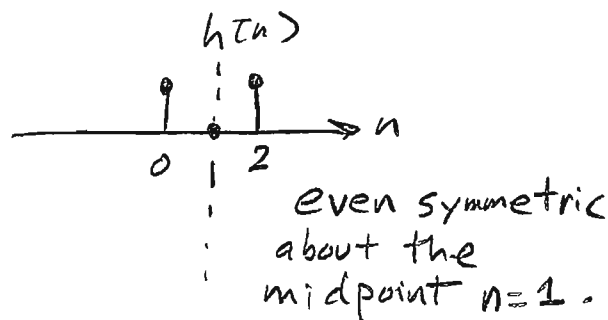 h[n]
n
0 1 2
even symmetric
about the
midpoint n=1.